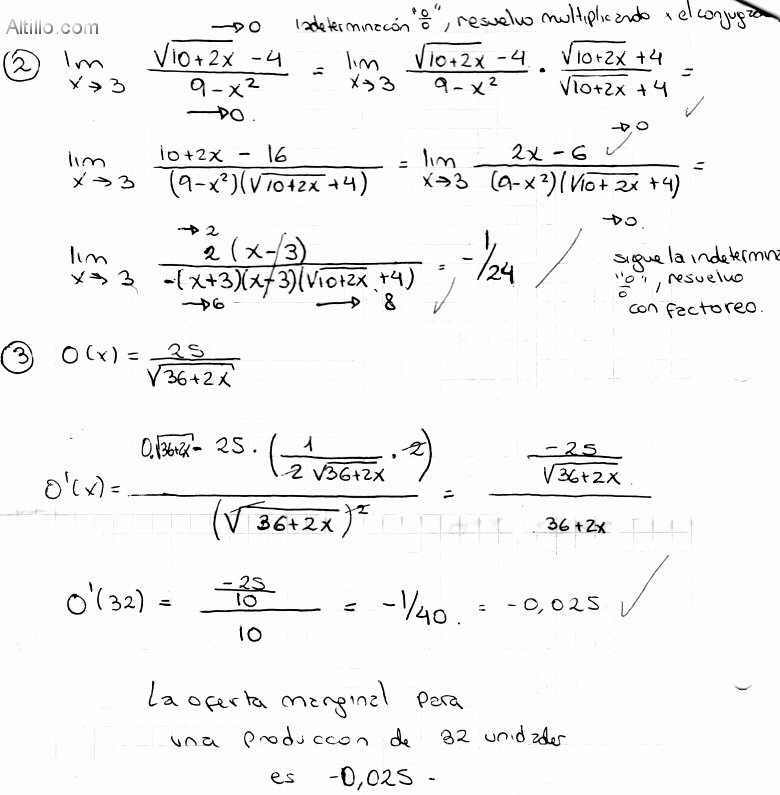 Altillo.com
→0 Indeterminación "0/0", resuelvo multiplicando x el conjugado
② lim x→3 (√(10+2x) -4)/(9-x²) = lim x→3 (√(10+2x) -4)/(9-x²) · (√(10+2x) +4)/(√(10+2x) +4) =
→0.
→0
lim x→3 (10+2x - 16)/((9-x²)(√(10+2x) +4)) = lim x→3 (2x-6)/((9-x²)(√(10+2x) +4)) =
→0.
→2
lim x→3 2(x-3)/(-(x+3)(x-3)(√(10+2x) +4)) = -1/24
→6 → 8
sigue la indetermina
"0/0", resuelvo
con factoreo.
③ O(x) = 25/√(36+2x)
O'(x) = (0.√(36+2x) - 25 · (1/(2√(36+2x)) · 2))/(√(36+2x))² = (-25/√(36+2x))/(36+2x)
O'(32) = (-25/10)/10 = -1/40. = -0,025
La oferta marginal para
una produccon de 32 unidades
es -0,025 -